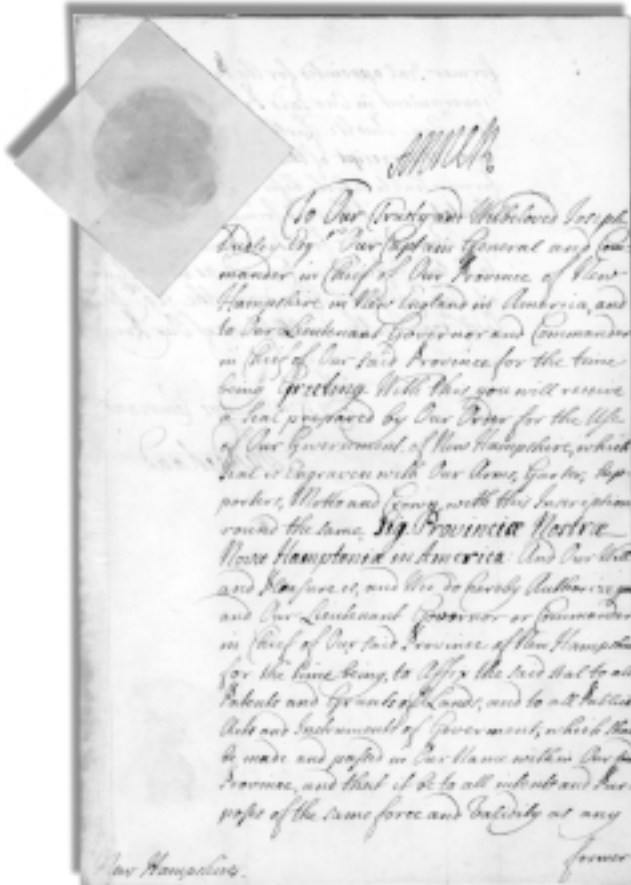 Anne R
To Our Trusty and Welbeloved Joseph
Dudley Esqr. Our Captain General and Com-
mander in Chief of Our Province of New
Hampshire in New England in America, and
to Our Lieutenant Governor and Commander
in Chief of Our said Province for the time
being Greeting. With this you will receive
a Seal prepared by Our Order for the Use
of Our Government of New Hampshire, which
Seal is Engraven with Our Arms, Garter, Sup-
porters, Motto and Crown, with this Inscription
round the same, Sig. Provinciæ Nostræ
Novæ Hamptoniæ in America: And Our Will
and Pleasure is, and We do hereby Authorize you
and Our Lieutenant Governor or Commander
in Chief of Our said Province of New Hampshire
for the time being, to Affix the said Seal to all
Patents and Grants of Lands, and to all Publick
Acts and Instruments of Goverment, which shall
be made and passed in Our Name within Our said
Province, and that it be to all intents and Pur-
poses of the same force and Validity as any
former
New Hampshire.